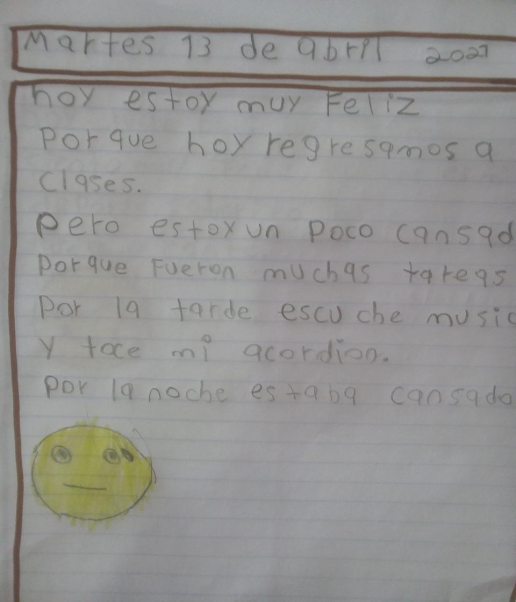 Martes 13 de abril 2021
hoy estoy muy Feliz
Porque hoy regresamos a
clases.
pero estoy un poco cansad
porque Fueron muchas tareas
Por la tarde escuche music
y toce mi acordion.
por la noche estaba cansado